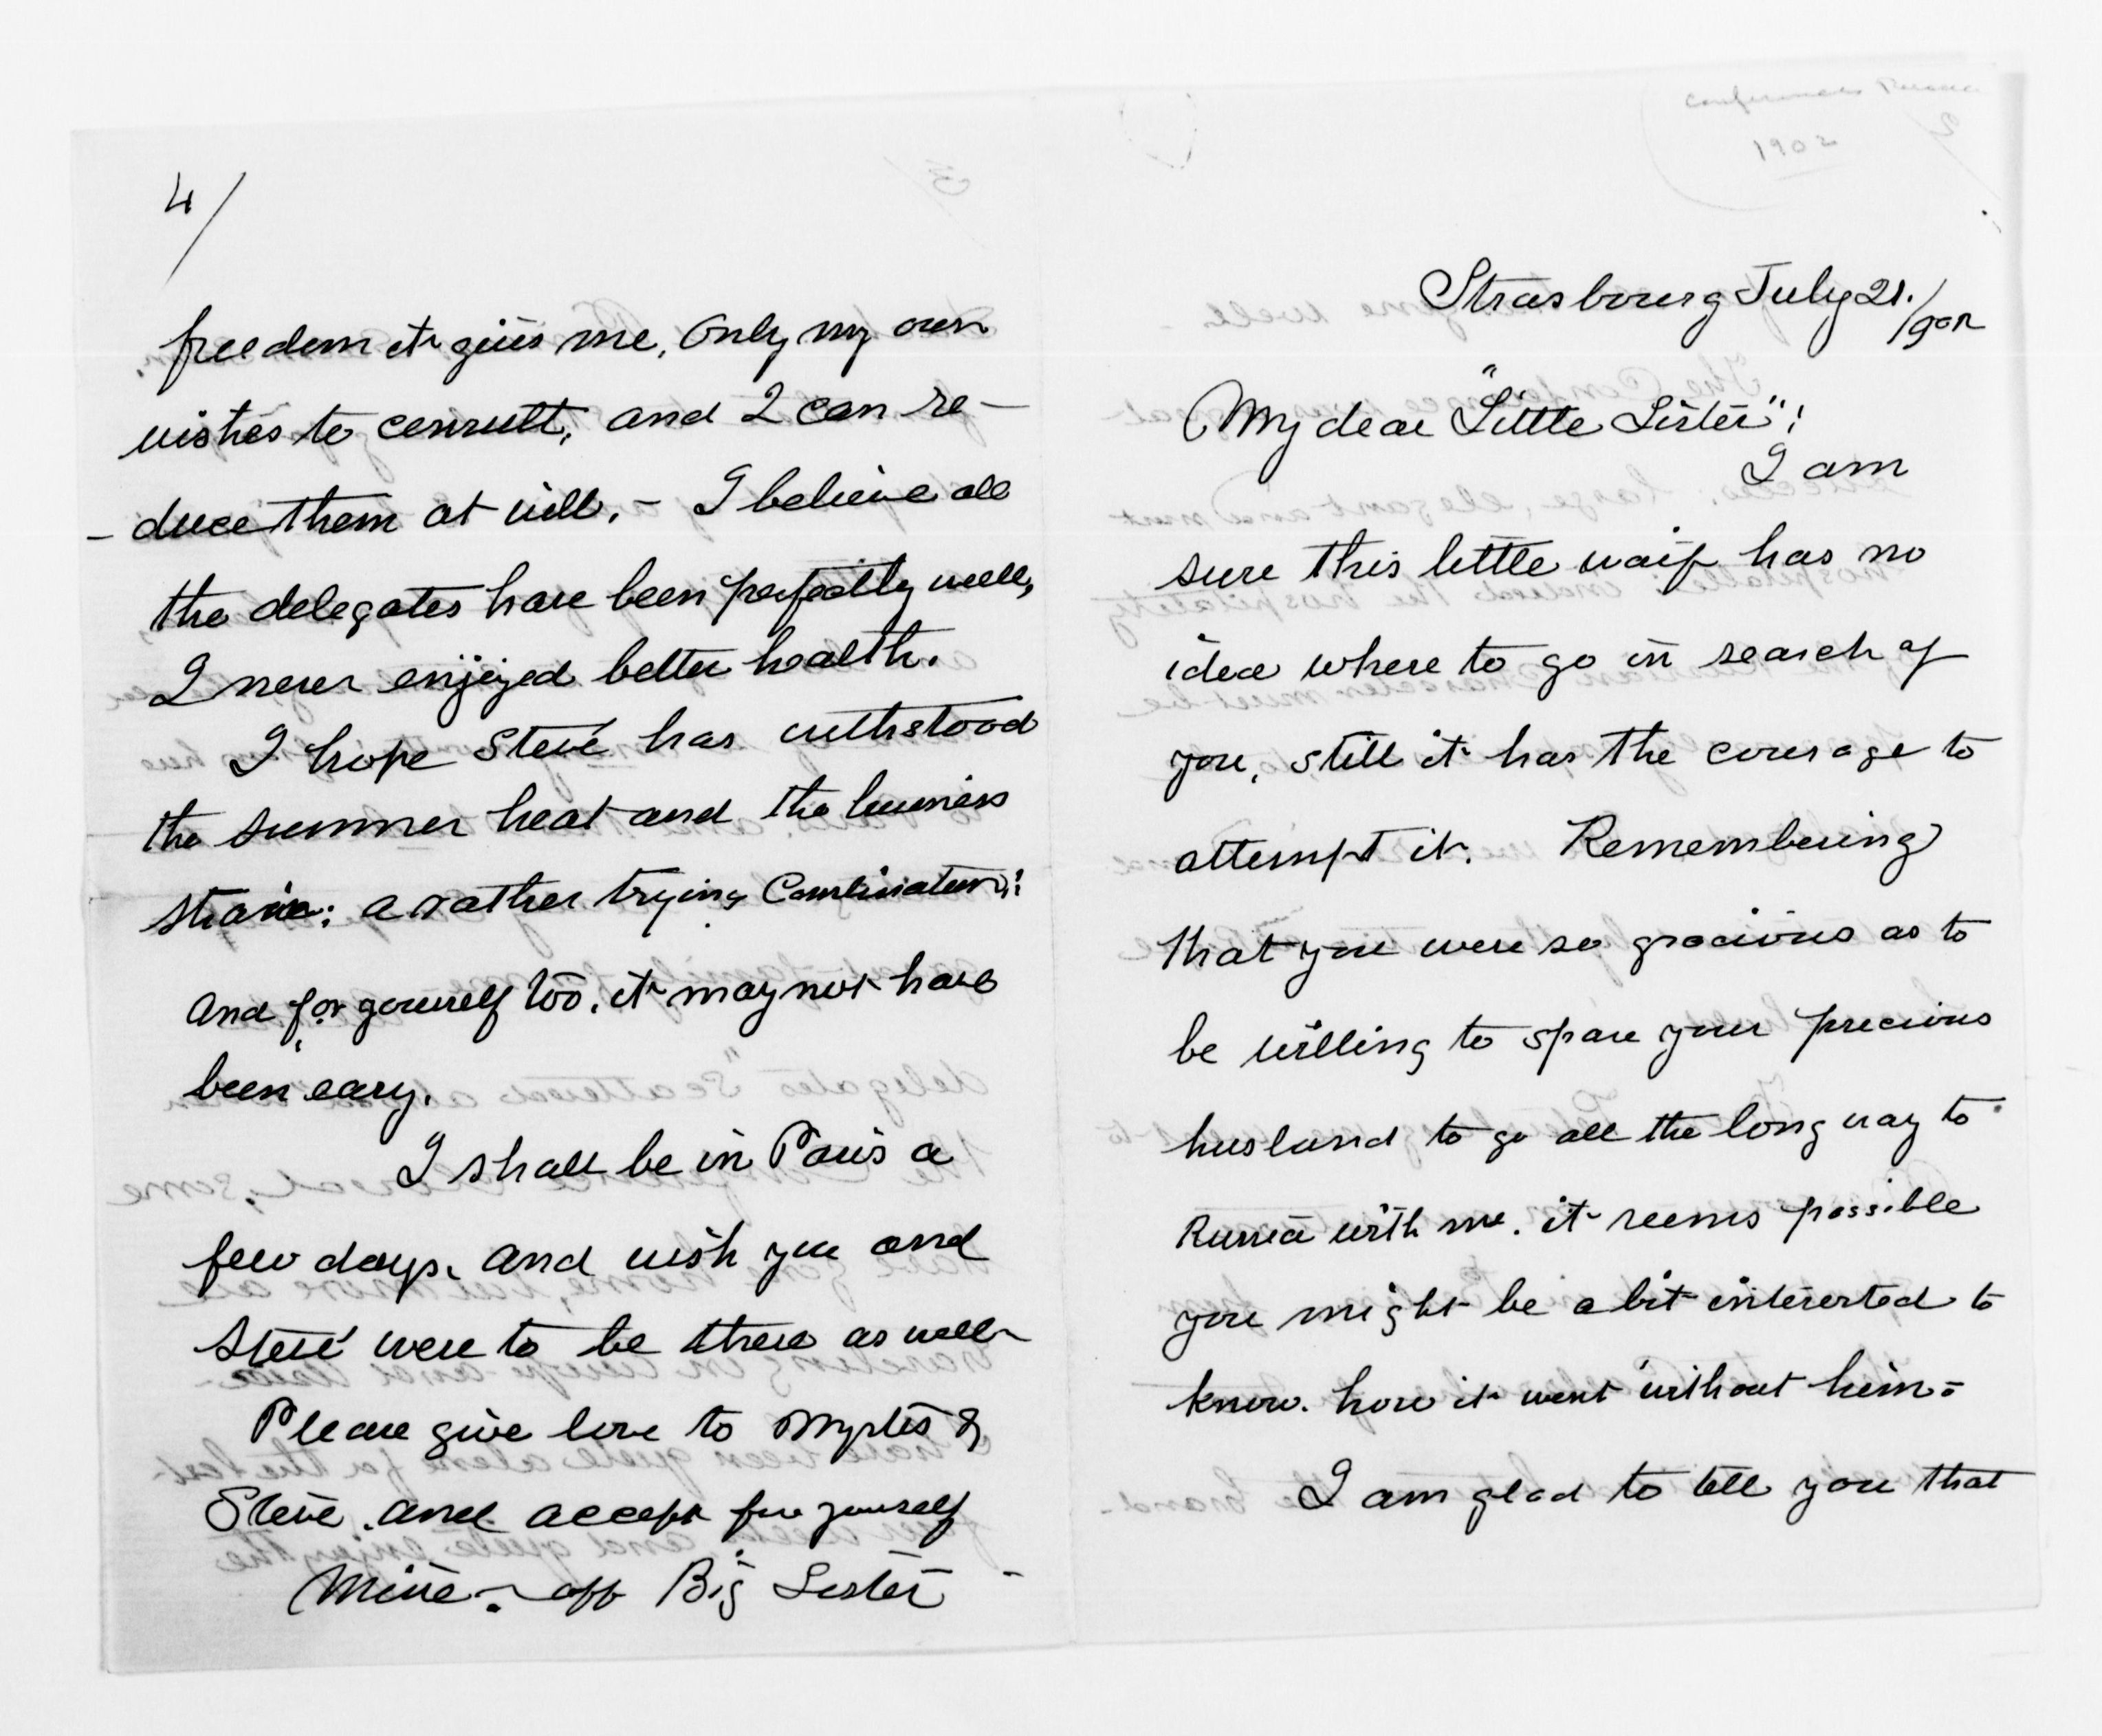 1902
Strasbourg July 21./902
My dear "Little Sister":
I am
sure this little waif has no
idea where to go in search of
you, still it has the courage to
attempt it. Remembering
that you were so gracious as to
be willing to spare your precious
husband to go all the long way to
Russia with me. it seems possible
you might be a bit interested to
know. how it went without him =
I am glad to tell you that
4/
freedom it gives me, only my own
wishes to consult, and I can re-
-duce them at will. - I believe all
the delegates have been perfectly well,
I never enjoyed better health.
I hope Steve has withstood
the summer heat and the business
strain: a rather trying combination:
And for yourself too, it may not have
been easy.
I shall be in Paris a
few days. and wish you and
Steve were to be there as well
Please give love to Myrtis &
Steve. and accept for yourself
Mine. - Big Sister -